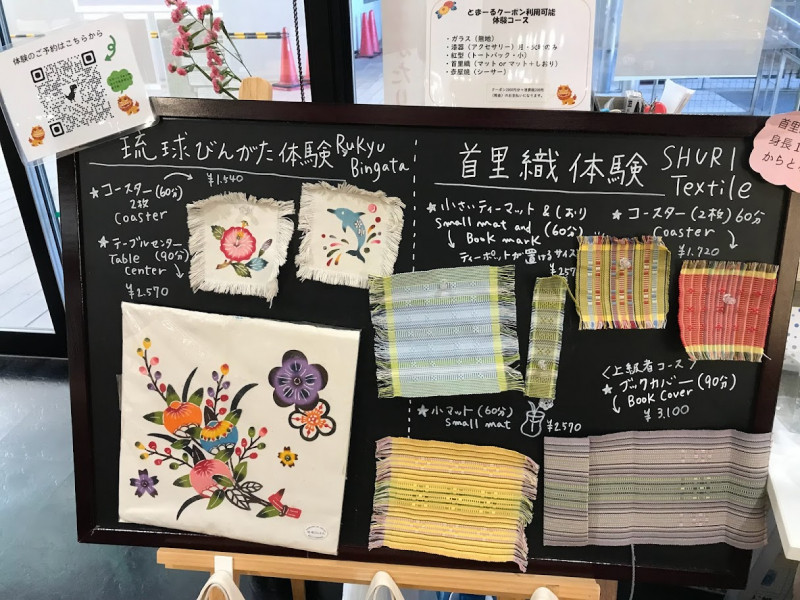 体験のご予約はこちらから
とまーるクーポン利用可能
体験コース
・ガラス（無地）
・紅型（トートバック・小）
・首里織（マット or マット＋しおり）
・壺屋焼（シーサー）
琉球びんがた体験
Ryukyu
Bingata
★コースター（60分）
2枚
Coaster
¥1.440
★テーブルセンター
Table (90分)
center
¥2.570
首里織体験
SHURI
Textile
★小さいティーマット＆しおり
Small mat and (60分)
Book mark
ティーポットが置けるサイズ
¥257
★コースター（2枚）60分
Coaster
¥1.720
★小マット（60分）
Small mat
¥2570
＜上級者コース＞
★ブックカバー（90分）
Book Cover
¥3.100
首里
身長1
からと